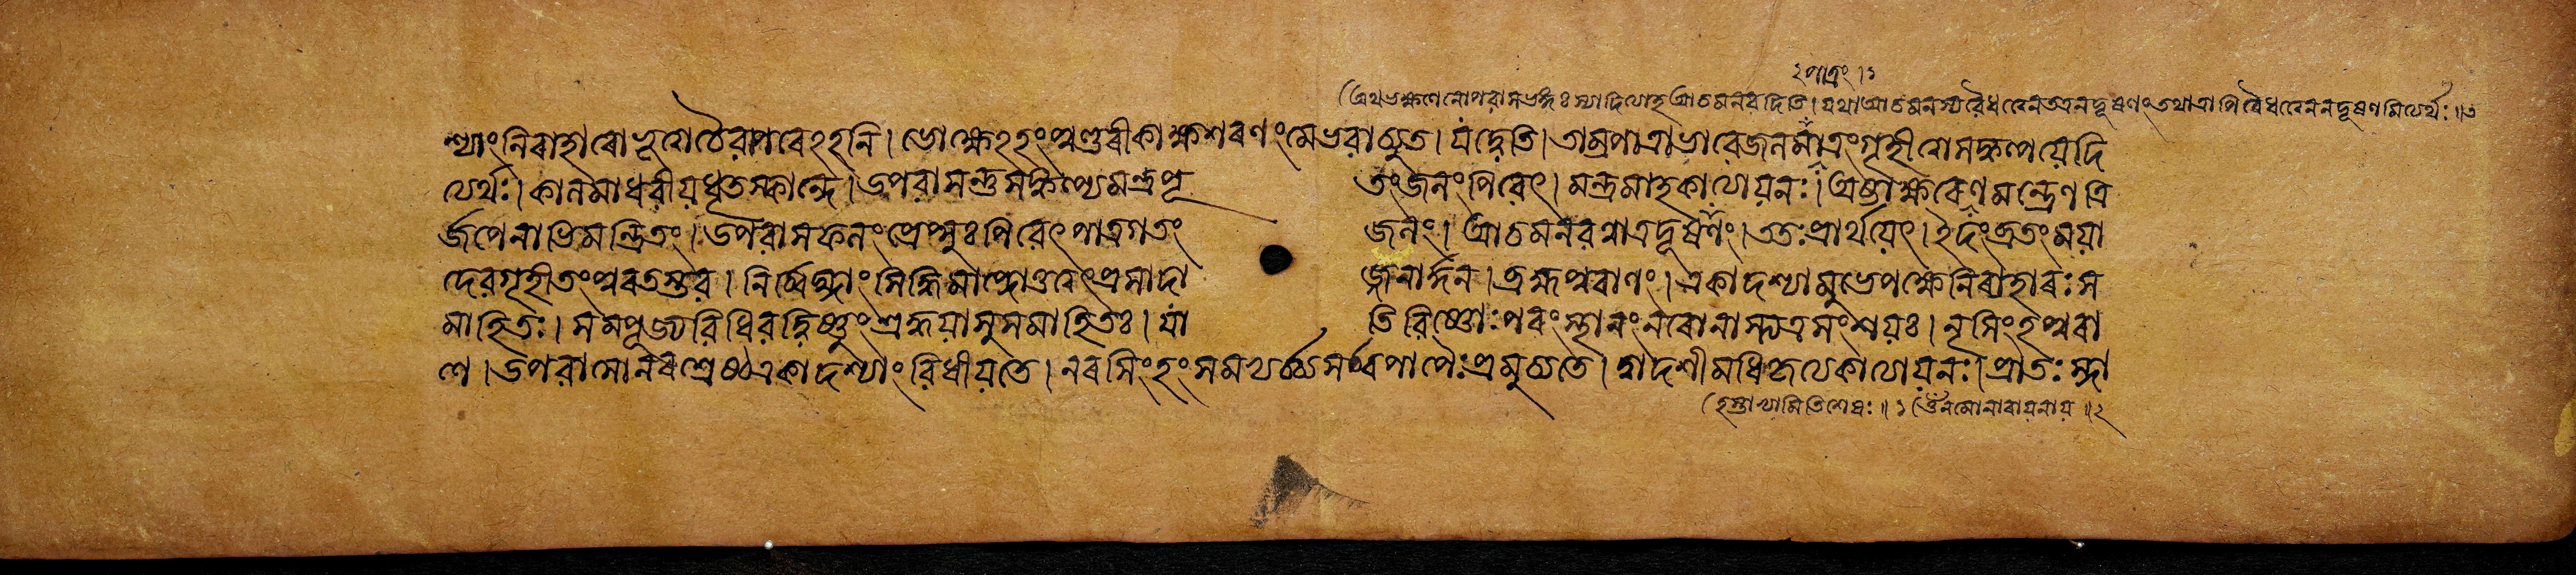 ২পাত্রং।১
(অথ ভক্ষণেনোপবাসভঙ্গঃ স্যাদিত্যাহ আচমনবদিতি। যথা আচমনস্য বৈধত্বেন অনদূষণং তথাত্রাপি বৈধত্বেন ন দূষণমিত্যর্থঃ॥৩
শ্যাং নিরাহারো ভূত্বা চৈবাপরেঽহনি। ভোক্ষ্যেঽহং পুণ্ডরীকাক্ষ শরণং মে ভবাচ্যুত। যদ্বেতি। তাম্রপাত্রাভাবে জলমাত্রং গৃহীত্বা সঙ্কল্পয়েদি
ত্যর্থঃ। কালমাধবীয়ধৃতস্কান্দে। উপবাসন্তু সঙ্কল্প্য মন্ত্রপূতং জলং পিবেৎ। মন্ত্রমাহ কাত্যায়নঃ। অষ্টাক্ষরেণ মন্ত্রেণ ত্রি
র্জপেনাভিমন্ত্রিতং। উপবাসফলং প্রেপ্সুঃ পিবেৎ পাত্রগতং জলং। আচমনবন্নাত্র দূষণং। ততঃ প্রার্থয়েৎ। ইদং ব্রতং ময়া
দেব গৃহীতং পুরতস্তব। নির্ব্বিঘ্নাং সিদ্ধিমাপ্নোতু ত্বৎপ্রসাদাজ্জনার্দ্দন। ব্রহ্মপুরাণং। একাদশ্যামুভে পক্ষে নিরাহারঃ স
মাহিতঃ। সম্পূজ্য বিধিবদ্বিষ্ণুং শ্রদ্ধয়া সুসমাহিতঃ। যাতি বিষ্ণোঃ পরং স্থানং নরো নাস্ত্যত্র সংশয়ঃ। নৃসিংহপুরা
ণে। উপবাসো নরশ্রেষ্ঠ একাদশ্যাং বিধীয়তে। নরসিংহং সমভ্যর্চ্চ্য সর্ব্বপাপৈঃ প্রমুচ্যতে। দ্বাদশীমধিকৃত্য কাত্যায়নঃ। প্রাতঃ স্না
(হস্তাভ্যামিতি শেষঃ॥১ (ওঁ নমো নারায়নায়॥২